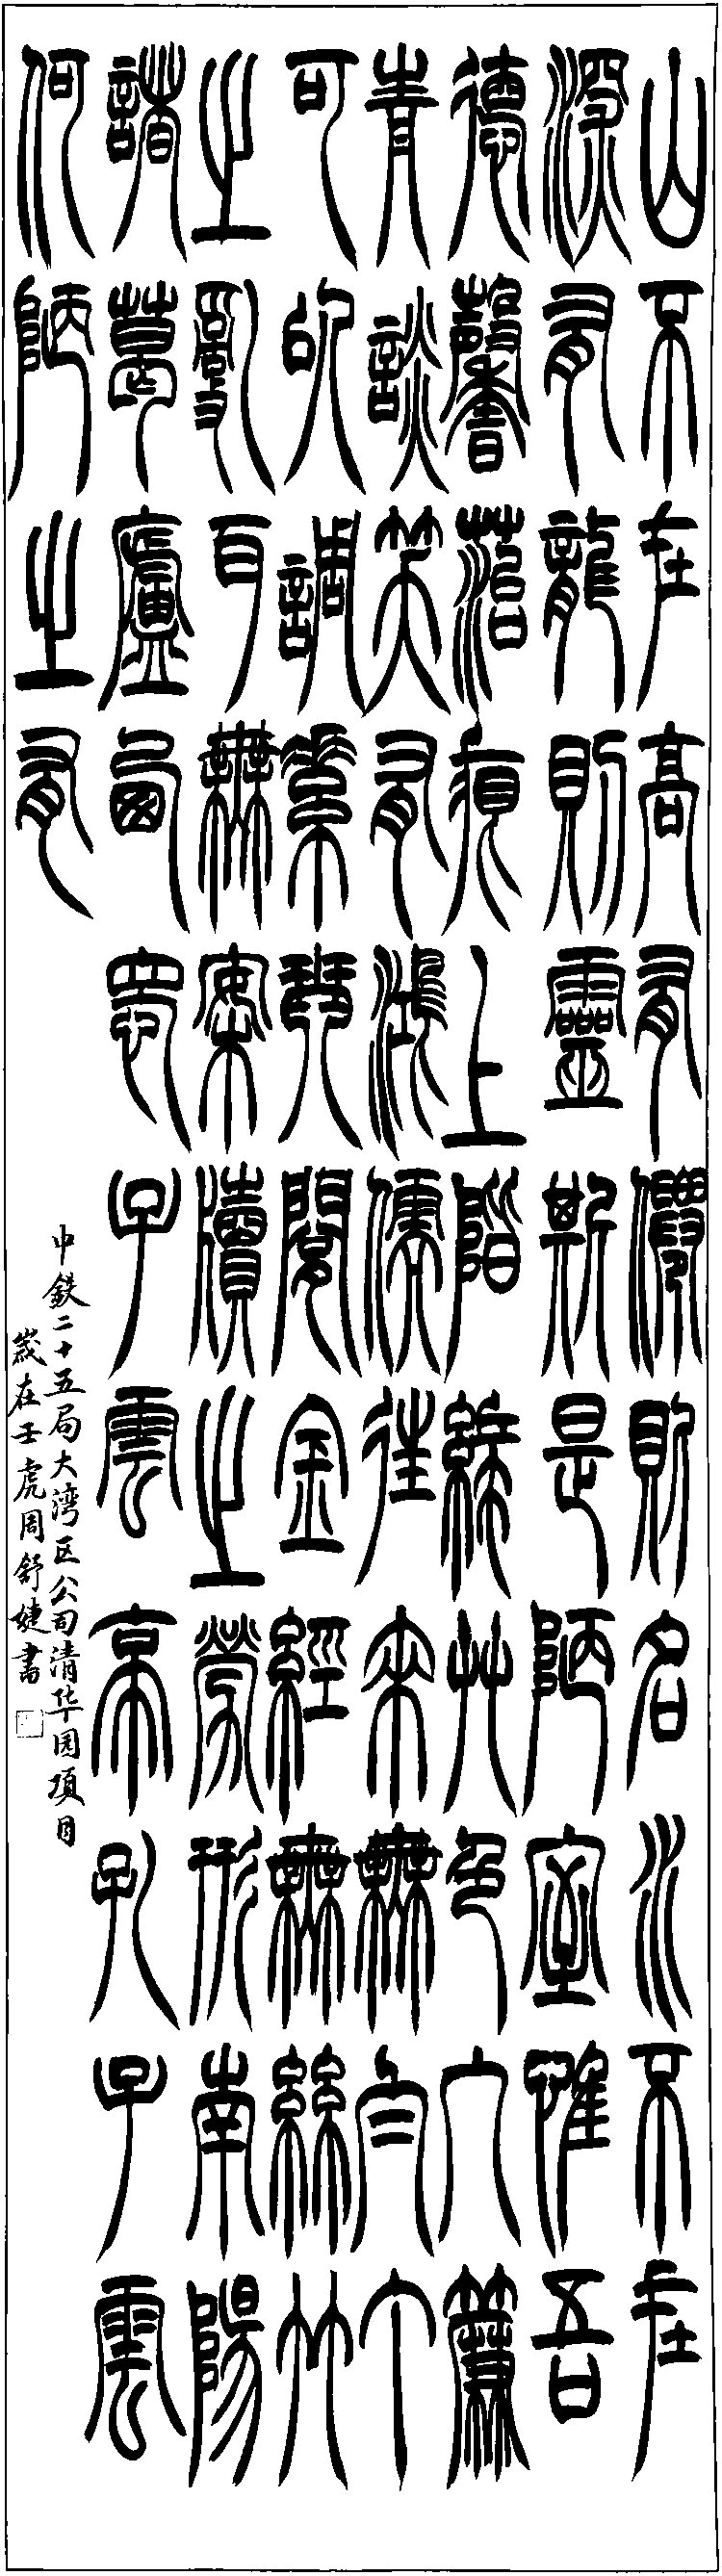 山不在高有僊則名水不在
深有龍則靈斯是陋室惟吾
德馨菭痕上階綠艸色入簾
青談笑有鴻儒往來無白丁
可以調素琴閱金經無絲竹
之亂耳無案牘之勞形南陽
諸葛廬西蜀子雲亭孔子雲
何陋之有
中鉄二十五局大湾区公司清华园項目
歲在壬虎周舒婕書